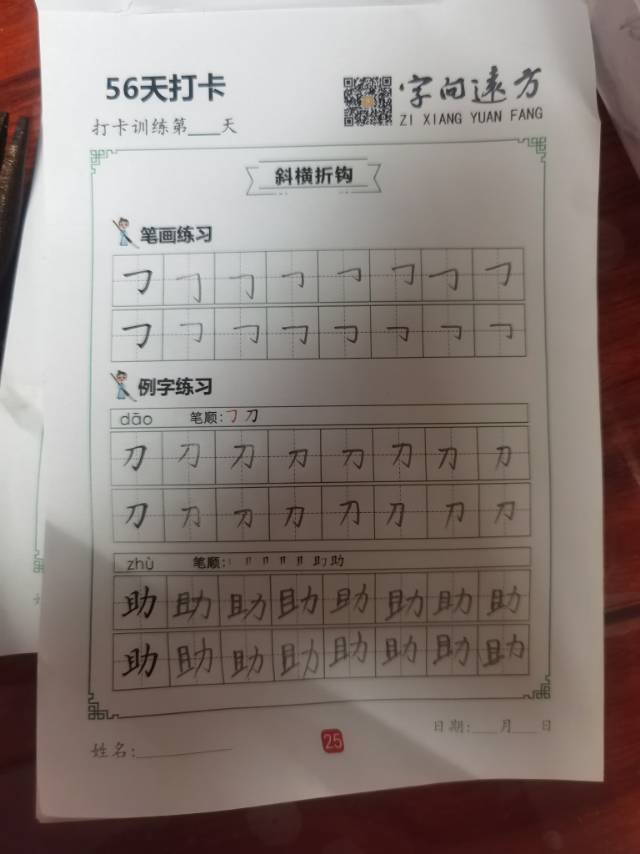 56天打卡
字向远方
打卡训练第___天
ZI XIANG YUAN FANG
斜横折钩
笔画练习
㇆ ㇆ ㇆ ㇆ ㇆ ㇆ ㇆ ㇆
㇆ ㇆ ㇆ ㇆ ㇆ ㇆ ㇆ ㇆
例字练习
dāo 笔顺:㇆ 刀
刀 刀 刀 刀 刀 刀 刀 刀
刀 刀 刀 刀 刀 刀 刀 刀
zhù 笔顺: 助
助 助 助 助 助 助 助 助
助 助 助 助 助 助 助 助
日期:___月___日
姓名:
25